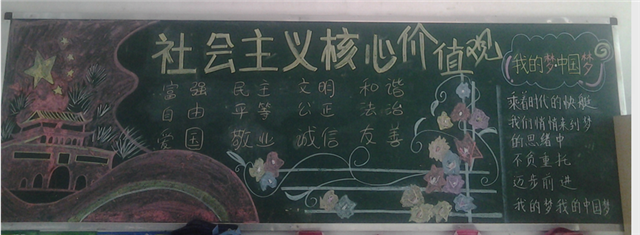 社会主义核心价值观
富强 民主 文明 和谐
自由 平等 公正 法治
爱国 敬业 诚信 友善
我的梦中国梦
乘着时代的快艇
我们悄悄来到梦
的思绪中
不负重托
迈步前进
我的梦我的中国梦